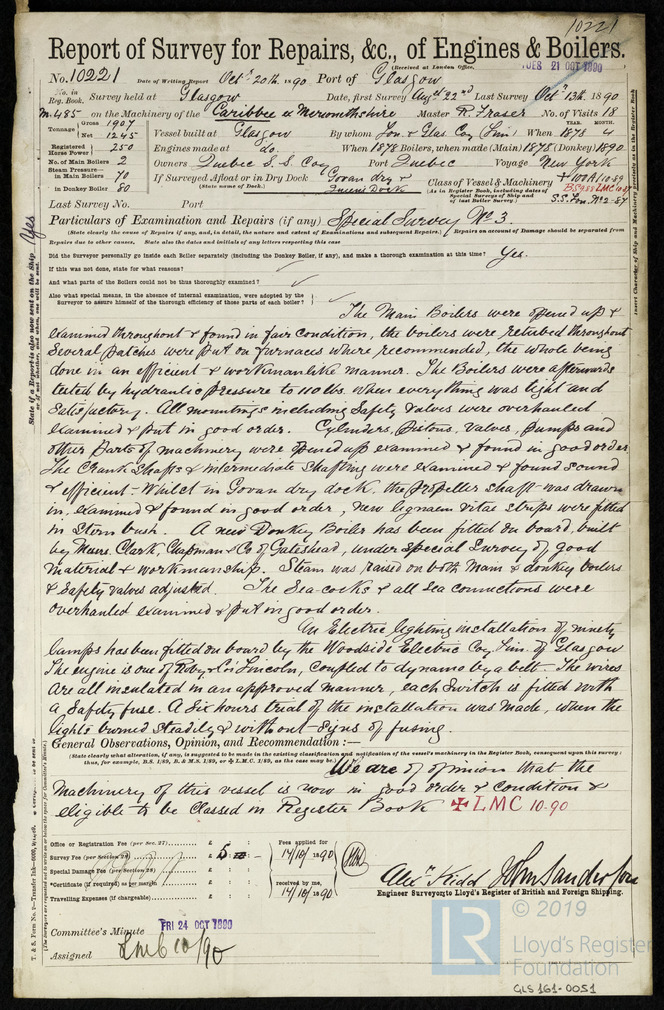 10221
Report of Survey for Repairs, &c., of Engines & Boilers.
(Received at London Office, TUES 21 OCT 1890
No. 10221 Date of Writing Report Oct. 20th 1890 Port of Glasgow
No. in Reg. Book. Survey held at Glasgow Date, first Survey Augt 22nd Last Survey Oct. 13th 1890
485 on the Machinery of the Caribbee Master R. Fraser No. of Visits 18
Tonnage Gross 1907 Net 1245 Vessel built at Glasgow By whom Lon. & Glas. Coy Lim. When 1878 YEAR. MONTH. 4
Registered Horse Power 250 Engines made at do. When 1878 Boilers, when made (Main) 1878 (Donkey) 1890
No. of Main Boilers 2 Owners Quebec S.S. Coy Port Quebec Voyage New York
Steam Pressure in Main Boilers 70 If Surveyed Afloat or in Dry Dock Govan dry & Class of Vessel & Machinery
in Donkey Boiler 80 (State name of Dock.) Queens Dock (As in Register Book, including dates of Special Surveys of Ship and of last Boiler Survey.) S.S. Lon. No 2-87
Last Survey No. Port
Particulars of Examination and Repairs (if any) Special Survey No 3.
(State clearly the cause of Repairs if any, and, in detail, the nature and extent of Examinations and subsequent Repairs.) Repairs on account of Damage should be separated from
Repairs due to other causes. State also the dates and initials of any letters respecting this case
Did the Surveyor personally go inside each Boiler separately (including the Donkey Boiler, if any), and make a thorough examination at this time? Yes.
If this was not done, state for what reasons?
And what parts of the Boilers could not be thus thoroughly examined?
Also what special means, in the absence of internal examination, were adopted by the
Surveyor to assure himself of the thorough efficiency of those parts of each boiler?
The Main Boilers were opened up &
examined throughout & found in fair condition, the boilers were retubed throughout
Several patches were put on furnaces where recommended, the whole being
done in an efficient & workmanlike manner. The Boilers were afterwards
tested by hydraulic pressure to 110 lbs. when everything was tight and
Satisfactory. All mountings including Safety Valves were overhauled
examined & put in good order. Cylinders, Pistons, Valves, Pumps and
other Parts of machinery were opened up examined & found in good order
The Crank Shafts & intermediate Shafting were examined & found sound
& efficient - Whilst in Govan dry dock the propeller shaft was drawn
in, examined & found in good order, new lignum vitae strips were fitted
in Stern bush. A new Donkey Boiler has been fitted on board, built
by Messrs. Clark Chapman & Co of Gateshead, under Special Survey of good
Material & workmanship. Steam was raised on both Main & donkey boilers
& Safety Valves adjusted. The Sea-cocks & all Sea connections were
overhauled examined & put in good order.
An Electric lighting installation of ninety
lamps has been fitted on board by the Woodside Electric Coy Lim. of Glasgow
The engine is one of Roby & Co's Lincoln, coupled to dynamo by a belt. The wires
are all insulated in an approved manner, each Switch is fitted with
a Safety fuse. A Six hours trial of the installation was made, when the
lights burned steadily & without signs of fusing.
General Observations, Opinion, and Recommendation:—
(State clearly what alteration, if any, is suggested to be made in the existing classification and notification of the vessel's machinery in the Register Book, consequent upon this survey;
thus, for example, B.S. 1/89, B. & M.S. 1/89, or ✠ L.M.C. 1/89, as the case may be.)
We are of opinion that the
Machinery of this vessel is now in good order & condition &
eligible to be Classed in Register Book ✠ LMC 10-90
Office or Registration Fee (per Sec. 27) £ : :
Survey Fee (per Section 28) £ 5 : :
Special Damage Fee (per Section 28) £ : :
*Certificate (if required) as per margin £ : :
Travelling Expenses (if chargeable) £ : :
Fees applied for
14/10/1890
received by me,
14/10/1890
Alexr Kidd John Sanderson
Engineer Surveyors to Lloyd's Register of British and Foreign Shipping.
Committee's Minute FRI 24 OCT 1890
Assigned LMC 10/90
State if a Report is also now sent on the Ship Yes
© 2019
LR
Lloyd's Register
Foundation
GLS 161-0051